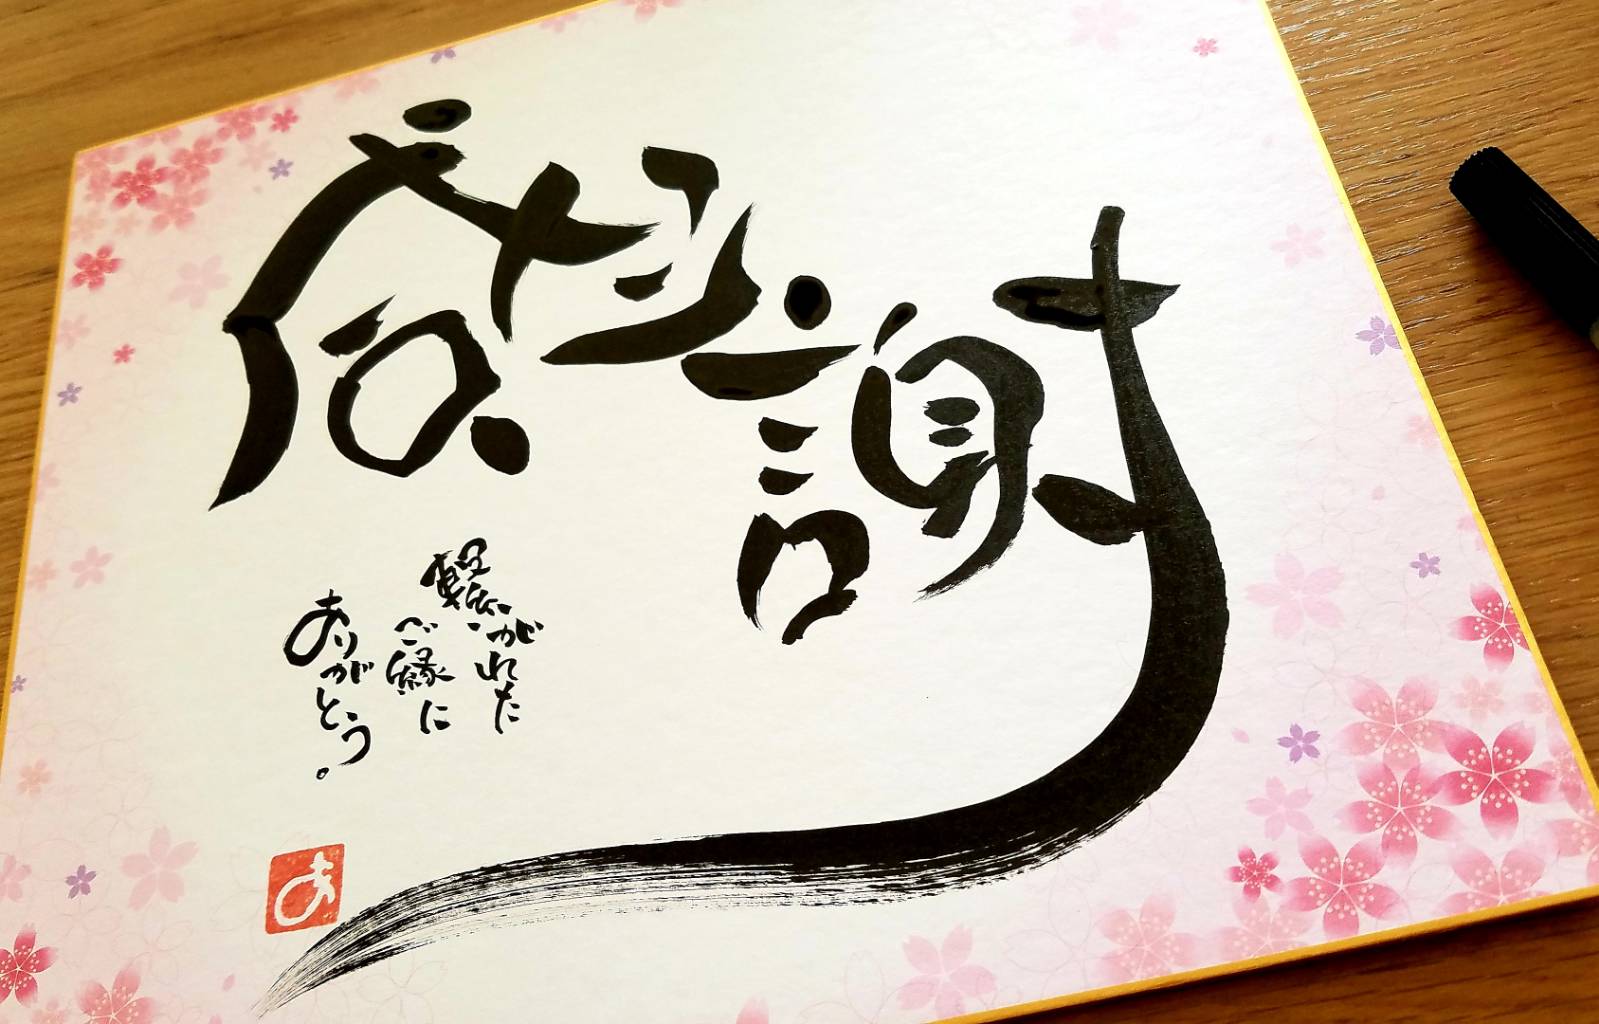 感謝
繋がれた
ご縁に
ありがとう。
あ